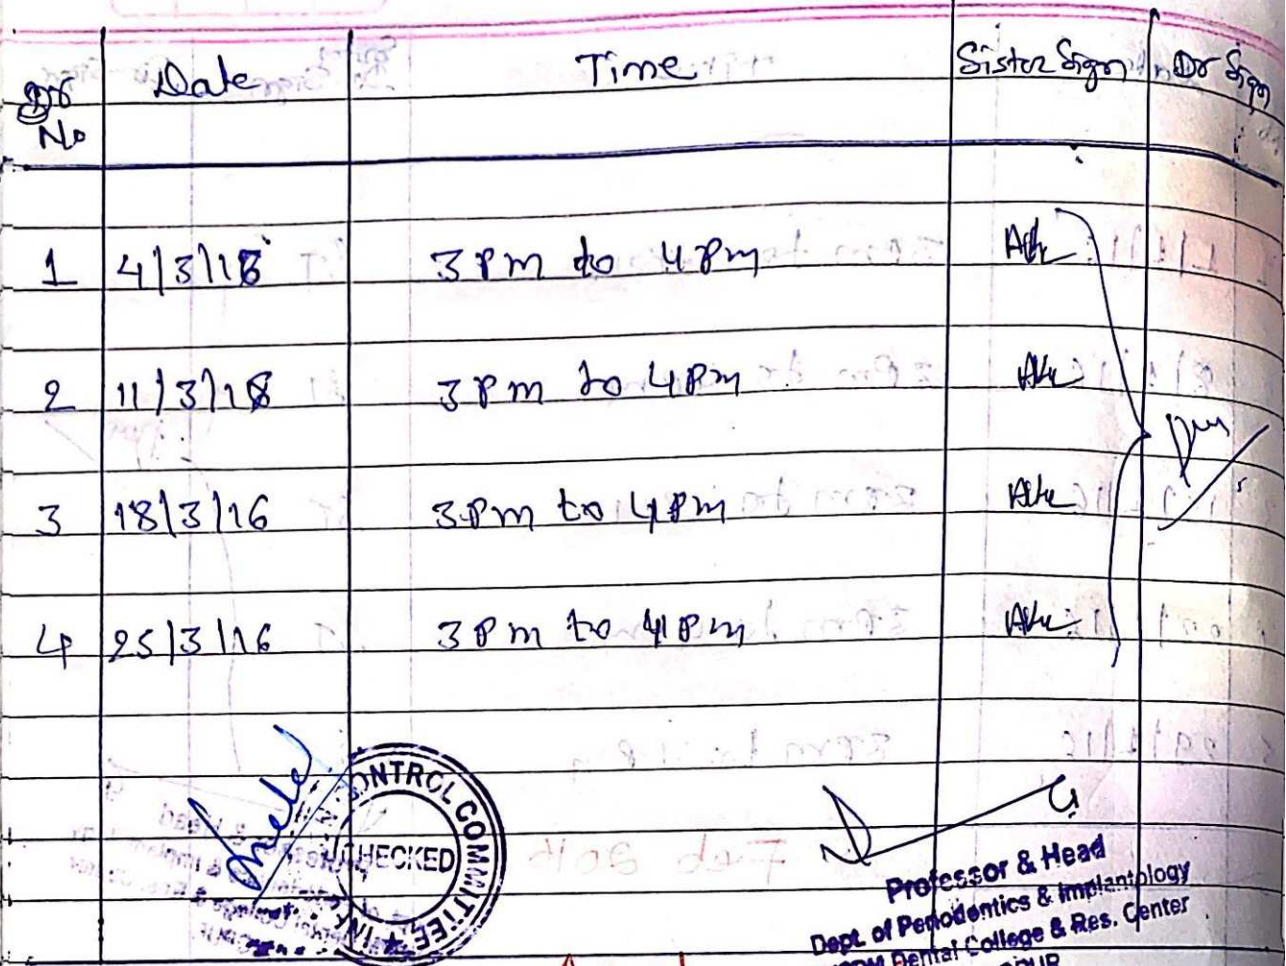 Sr No Date Time Sister Sign Dr Sign
1 4/3/16 3 Pm to 4 Pm
2 11/3/16 3 Pm to 4 Pm
3 18/3/16 3 Pm to 4 Pm
4 25/3/16 3 Pm to 4 Pm
CONTROL COMMITTEE
CHECKED
Professor & Head
Dept. of Periodontics & Implantology
Dental College & Res. Center